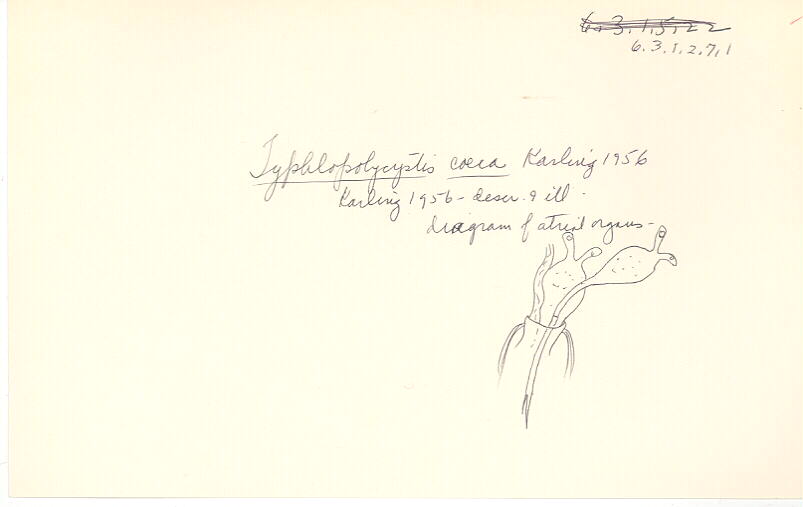 6.3.1.5.22
6.3.1.2.7.1
Typhlopolycystis coeca Karling 1956
Karling 1956 - descr. & ill.
diagram of atrial organs -